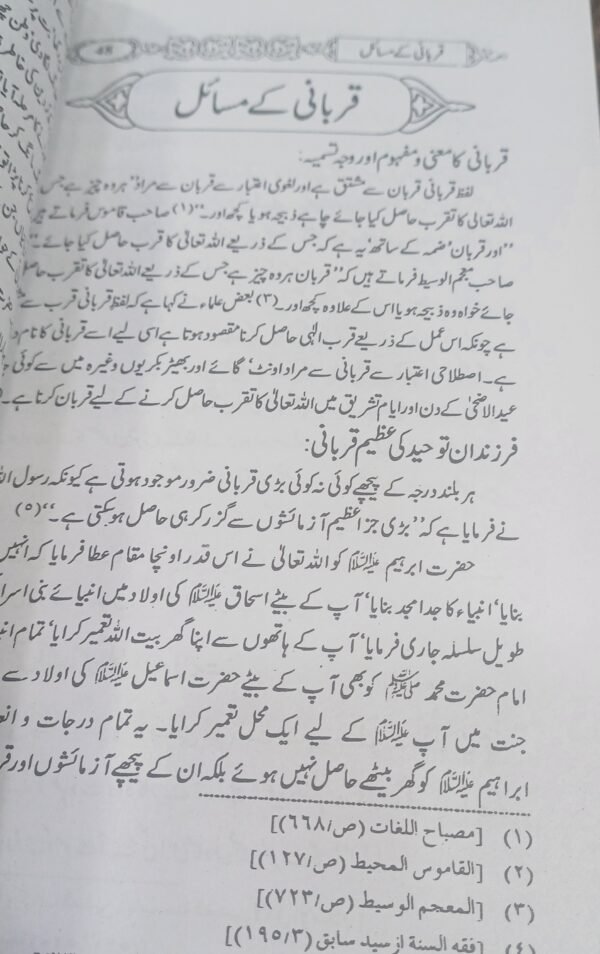 قربانی کے مسائل
قربانی کے مسائل
قربانی کا معنی و مفہوم اور وجہ تسمیہ:
لفظ قربانی قربان سے مشتق ہے اور لغوی اعتبار سے قربان سے مراد ”ہر وہ چیز ہے جس
اللہ تعالیٰ کا تقرب حاصل کیا جائے چاہے ذبیحہ ہو یا کچھ اور۔“(۱) صاحب قاموس فرماتے ہیں
”اور قربان‘ ضمہ کے ساتھ‘ یہ ہے کہ جس کے ذریعے اللہ تعالیٰ کا قرب حاصل کیا جائے۔“
صاحب معجم الوسیط فرماتے ہیں کہ ”قربان ہر وہ چیز ہے جس کے ذریعے اللہ تعالیٰ کا تقرب حاصل
جائے خواہ وہ ذبیحہ ہو یا اس کے علاوہ کچھ اور۔(۳) بعض علماء نے کہا ہے کہ لفظ قربانی قرب سے
ہے چونکہ اس عمل کے ذریعے قرب الٰہی حاصل کرنا مقصود ہوتا ہے اسی لیے اسے قربانی کا نام
ہے۔ اصطلاحی اعتبار سے قربانی سے مراد اونٹ‘ گائے اور بھیڑ بکریوں وغیرہ میں سے کوئی
عید الاضحیٰ کے دن اور ایام تشریق میں اللہ تعالیٰ کا تقرب حاصل کرنے کے لیے قربان کرنا ہے۔
فرزندان توحید کی عظیم قربانی:
ہر بلند درجہ کے پیچھے کوئی نہ کوئی بڑی قربانی ضرور موجود ہوتی ہے کیونکہ رسول
نے فرمایا ہے کہ ”بڑی جزا عظیم آزمائشوں سے گزر کر ہی حاصل ہو سکتی ہے۔“(۵)
حضرت ابراہیم علیہ السلام کو اللہ تعالیٰ نے اس قدر اونچا مقام عطا فرمایا کہ انہیں
بنایا‘ انبیاء کا جد امجد بنایا‘ آپ کے بیٹے اسحاق علیہ السلام کی اولاد میں انبیائے بنی
طویل سلسلہ جاری فرمایا‘ آپ کے ہاتھوں سے اپنا گھر بیت اللہ تعمیر کرایا‘ تمام
امام حضرت محمد ﷺ کو بھی آپ کے بیٹے حضرت اسماعیل علیہ السلام کی اولاد سے
جنت میں آپ علیہ السلام کے لیے ایک محل تعمیر کرایا۔ یہ تمام درجات و
ابراہیم علیہ السلام کو گھر بیٹھے حاصل نہیں ہوئے بلکہ ان کے پیچھے آزمائشوں اور
(۱) [مصباح اللغات (ص/۶۶۸)]
(۲) [القاموس المحیط (ص/۱۲۷)]
(۳) [المعجم الوسیط (ص/۷۲۳)]
(٤) [فقه السنة از سید سابق (۱۹۵/۳)]